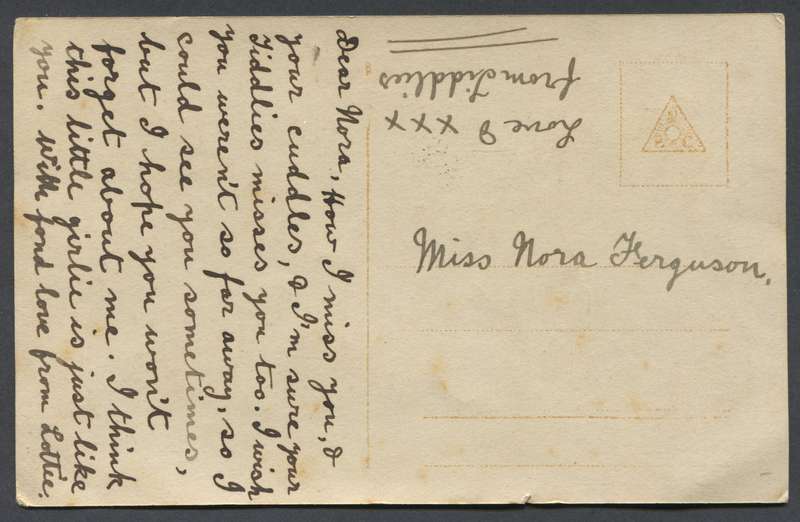 Dear Nora, How I miss you, &
your cuddles, & I'm sure your
Tiddlies misses you too. I wish
you weren't so far away, so I
could see you sometimes,
but I hope you won't
forget about me. I think
this little girlie is just like
you. With fond love from Lottie.
Love & xxx
from Tiddlies
Miss Nora Ferguson.